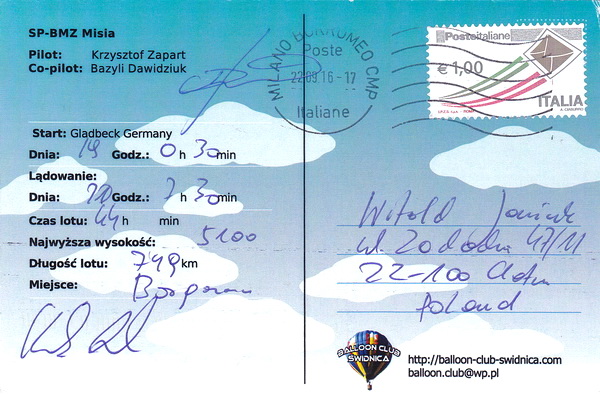 SP-BMZ Misia
Pilot: Krzysztof Zapart
Co-pilot: Bazyli Dawidziuk
Start: Gladbeck Germany
Dnia: 19 Godz.: 0 h 30 min
Lądowanie:
Dnia: Godz.: 7 h 30 min
Czas lotu: h min
Najwyższa wysokość: 5100
Długość lotu: 749 km
Miejsce:
MILANO BORROMEO CMP
Poste
22.09.16-17
Italiane
Posteitaliane
€ 1,00
ITALIA
Witold
47/11
22-100
Poland
BALLOON CLUB
SWIDNICA
http://balloon-club-swidnica.com
balloon.club@wp.pl